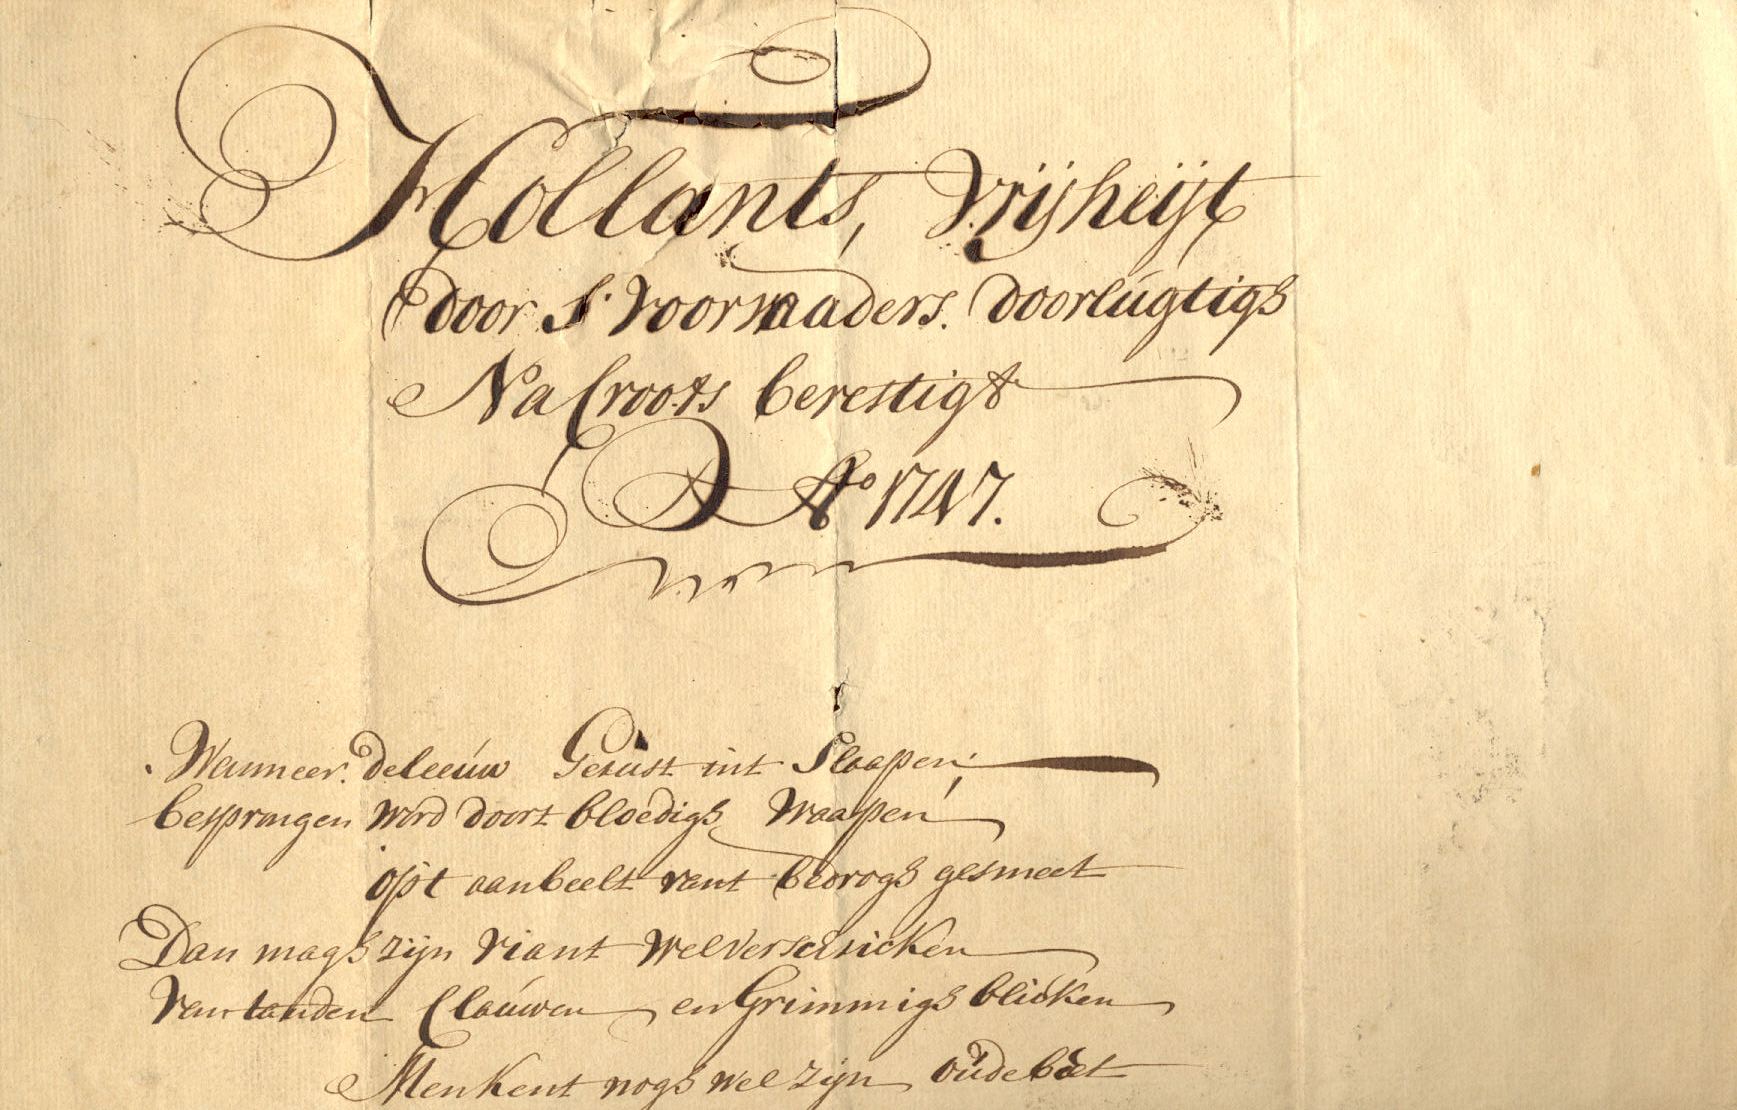 Hollants, Vrijheijt
door S. Voorvaaders. doorlúgtigh
Na Croots bevestigt
Ao 1747.
Wanneer. de leeúw Gerust int Slaapen;
besprongen word doort bloedigh Waapen
opt aanbeelt vant bedrogh gesmeet
Dan magh zijn viant wel verschricken
Van tanden Claúwen en Grimmigh blicken
Men kent nogh wel zijn oúde beet